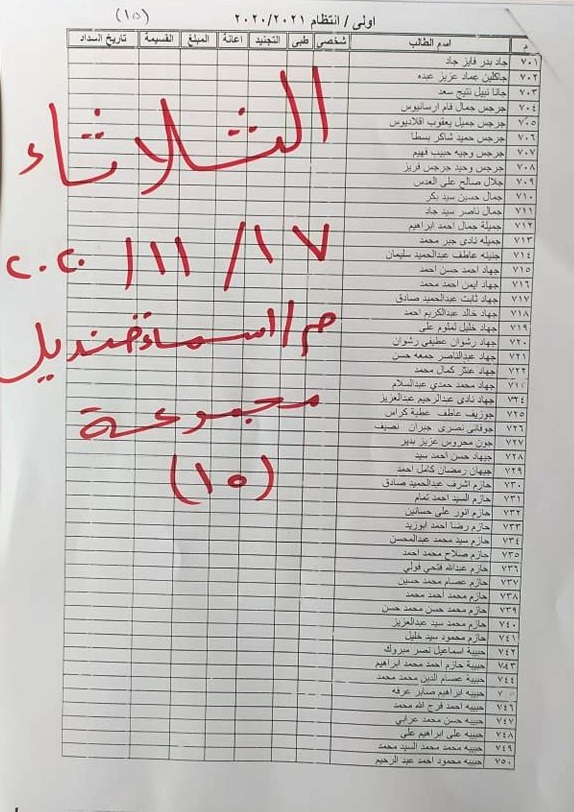 (١٥)
اولى / انتظام ٢٠٢٠/٢٠٢١
م اسم الطالب شخصى طبى التجنيد اعانة المبلغ القسيمة تاريخ السداد
٧٠١ جاد بدر فايز جاد
٧٠٢ جاكلين عماد عزيز عبده
٧٠٣ جانا نبيل نتيج سعد
٧٠٤ جرجس جمال فام ارسانيوس
٧٠٥ جرجس جميل يعقوب اقلاديوس
٧٠٦ جرجس حميد شاكر بسطا
٧٠٧ جرجس وجيه حبيب فهيم
٧٠٨ جرجس وحيد جرجس فريز
٧٠٩ جلال صالح على العدس
٧١٠ جمال حسين سيد بكر
٧١١ جمال ناصر سيد جاد
٧١٢ جميلة جمال احمد ابراهيم
٧١٣ جميله نادى جبر محمد
٧١٤ جنينه عاطف عبدالحميد سليمان
٧١٥ جهاد احمد حسن احمد
٧١٦ جهاد ايمن احمد محمد
٧١٧ جهاد ثابت عبدالحميد صادق
٧١٨ جهاد خالد عبدالكريم احمد
٧١٩ جهاد خليل لملوم على
٧٢٠ جهاد رشوان عطيفى رشوان
٧٢١ جهاد عبدالناصر جمعه حسن
٧٢٢ جهاد عنتر كمال محمد
جهاد محمد حمدي عبدالسلام
٧٢٤ جهاد نادى عبدالرحيم عبدالعزيز
٧٢٥ جوزيف عاطف عطية كراس
٧٢٦ جوفانى نصرى جبران نصيف
٧٢٧ جون محروس عزيز بدير
٧٢٨ جيهاد حسن احمد سيد
٧٢٩ جيهان رمضان كامل احمد
٧٣٠ حازم اشرف عبدالحميد صادق
٧٣١ حازم السيد احمد تمام
٧٣٢ حازم انور على حسانين
٧٣٣ حازم رضا احمد ابوزيد
٧٣٤ حازم سيد محمد عبدالمحسن
٧٣٥ حازم صلاح محمد احمد
٧٣٦ حازم عبدالله فتحي فولي
٧٣٧ حازم عصام محمد حسين
٧٣٨ حازم محمد احمد محمد
٧٣٩ حازم محمد حسن محمد حسن
٧٤٠ حازم محمد سيد عبدالعزيز
٧٤١ حازم محمود سيد خليل
٧٤٢ حبيبة اسماعيل نصر مبروك
٧٤٣ حبيبة حازم احمد محمد ابراهيم
٧٤٤ حبيبة عصام الدين محمد محمد
حبيبه ابراهيم صابر عرفه
٧٤٦ حبيبه احمد فرج الله محمد
٧٤٧ حبيبه حسن محمد عرابي
٧٤٨ حبيبه على ابراهيم على
٧٤٩ حبيبه محمد محمد السيد محمد
٧٥٠ حبيبه محمود احمد عبد الرحيم
الثلاثاء
١٧ / ١١ / ٢٠٢٠
م / اسماء قنديل
مجموعة
(١٥)